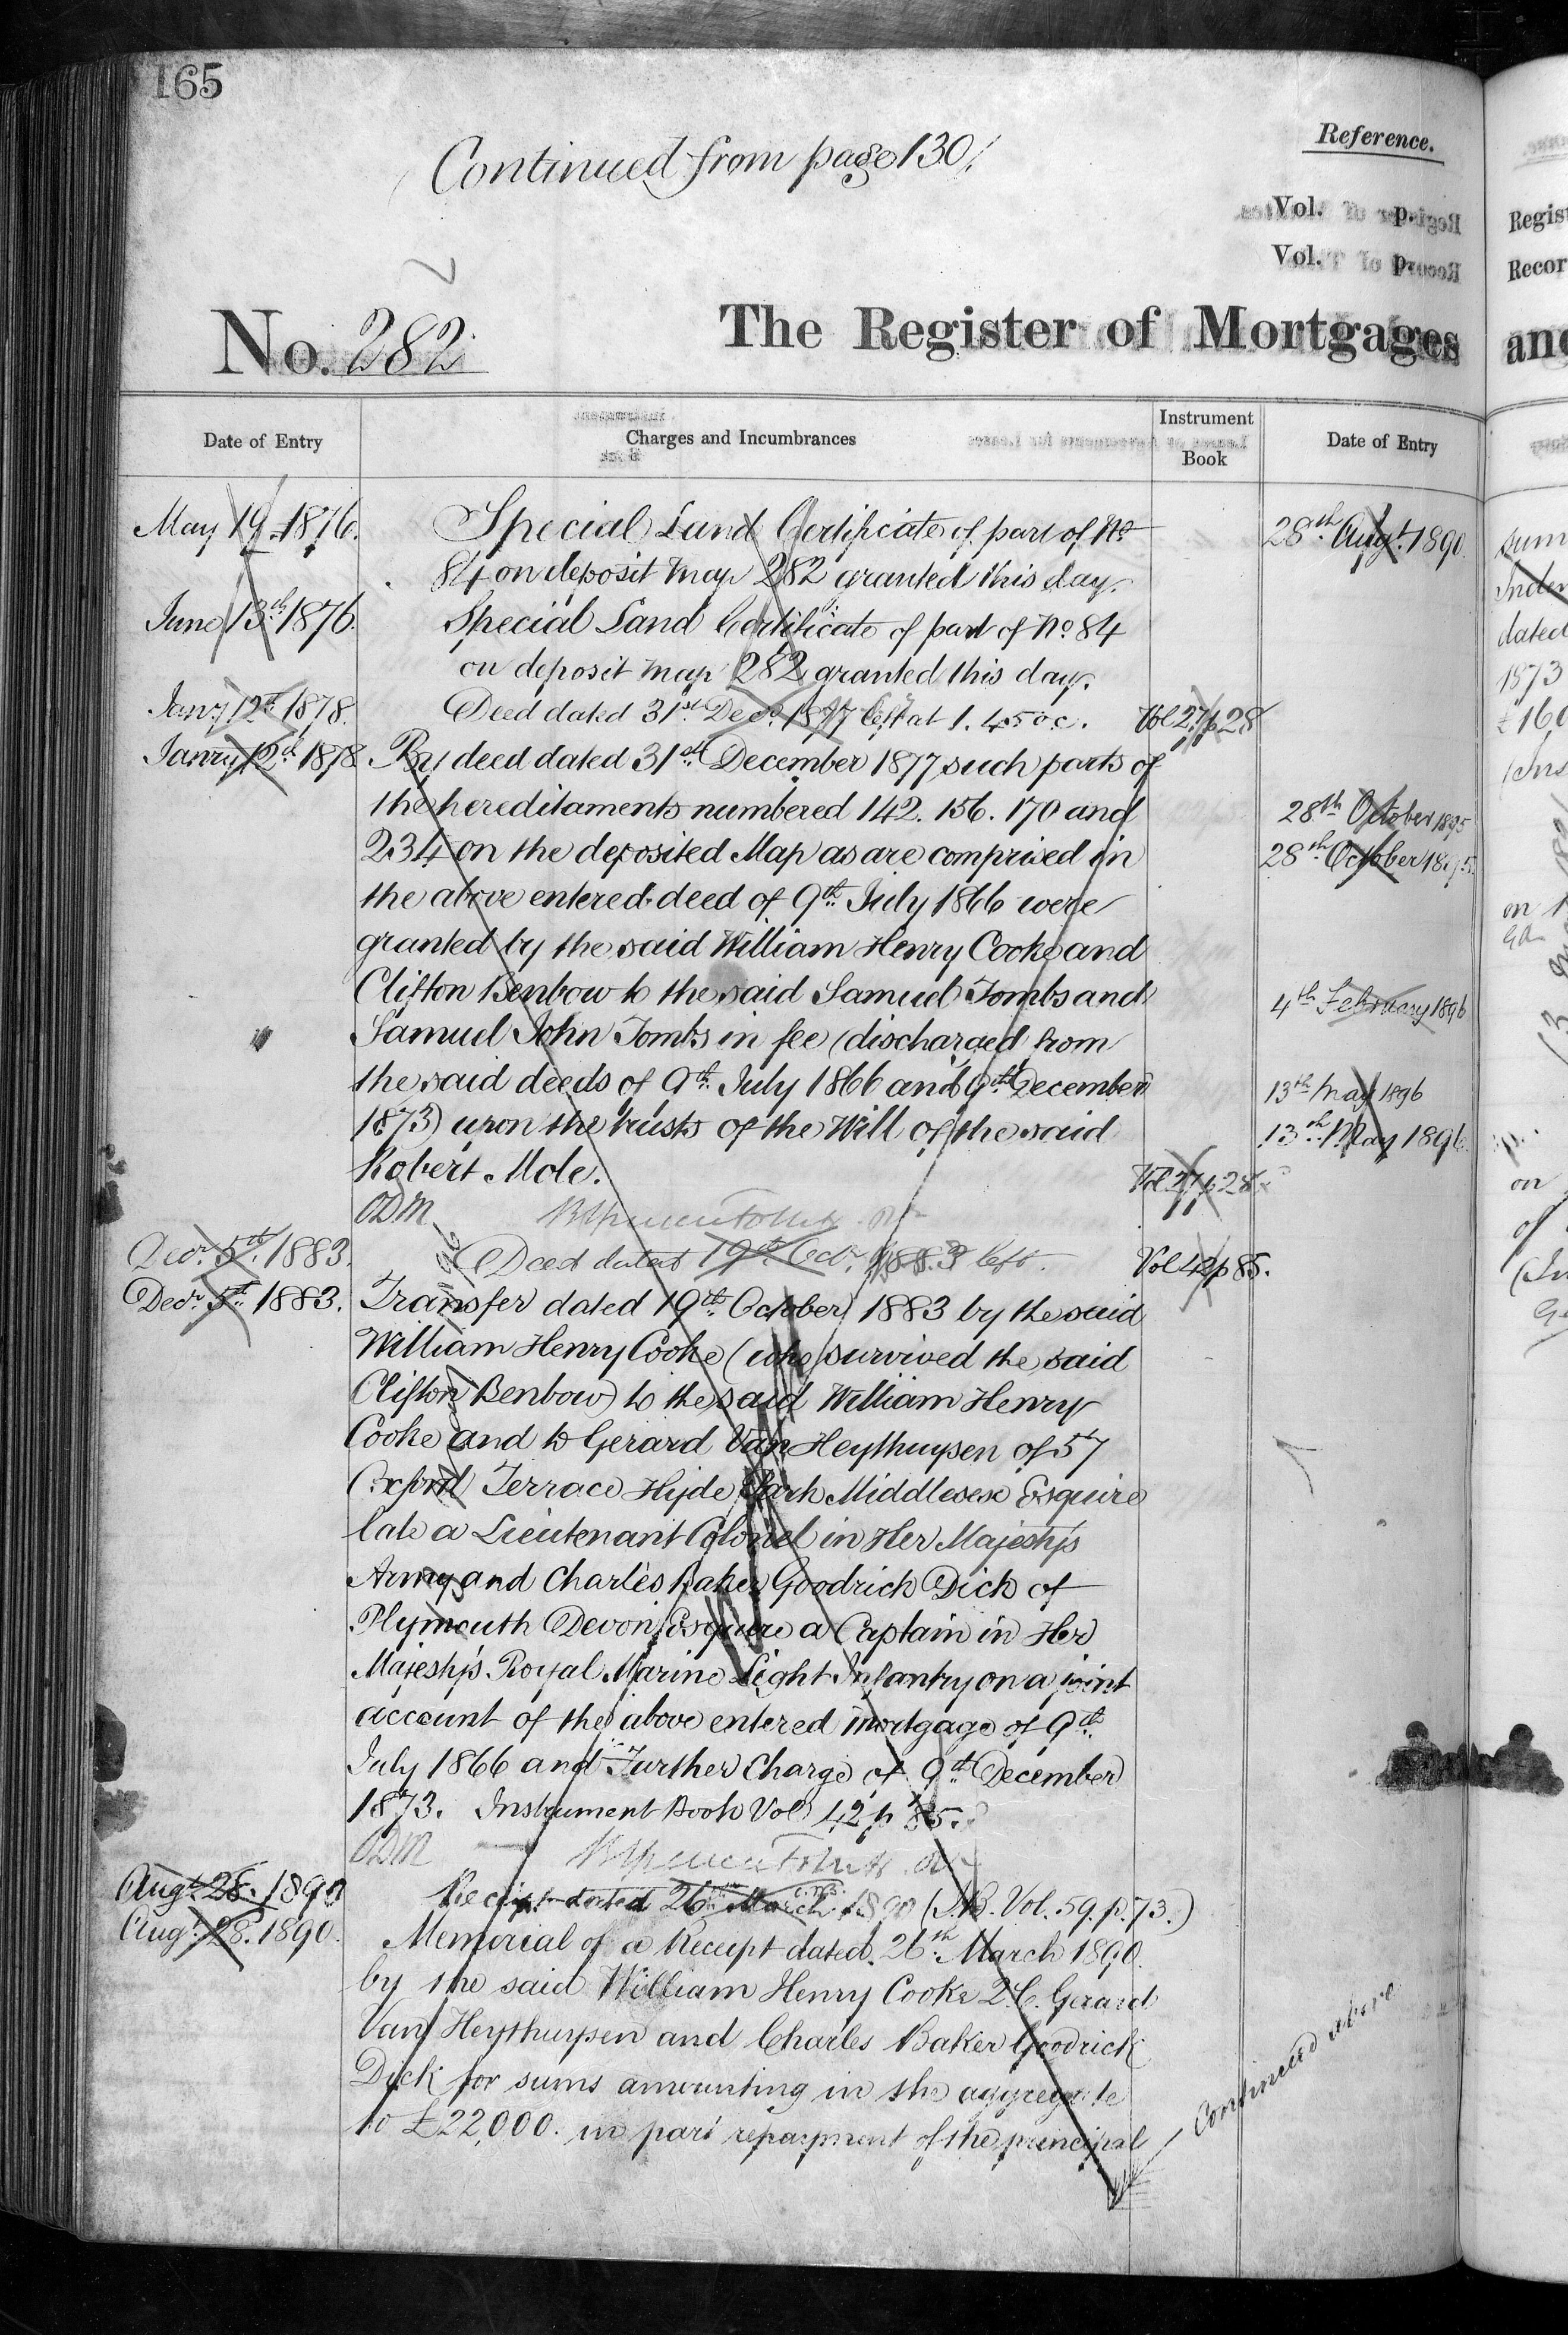 165
Continued from page 130
Reference.
Vol. p.
Vol. p.
No. 282
The Register of Mortgages
Date of Entry
Charges and Incumbrances
Instrument Book
Date of Entry
May 19 1876. Special Land Certificate of part of No
84 on deposit map 282 granted this day.
June 13th 1876. Special Land Certificate of part of No. 84
on deposit map 282 granted this day.
Jany 12th 1878. Deed dated 31st Decr 1877 left at 1.45 oc. Vol 27 p 28
Janry 12th 1878 By deed dated 31st December 1877 such parts of
the hereditaments numbered 142. 156. 170 and
234 on the deposited Map as are comprised in
the above entered deed of 9th July 1866 were
granted by the said William Henry Cooke and
Clifton Benbow to the said Samuel Tombs and
Samuel John Tombs in fee (discharged from
the said deeds of 9th July 1866 and 9th December
1873) upon the trusts of the Will of the said
Robert Mole. Vol 27 p 28
ODM
Decr 5th 1883. Deed dated 19th Octr 1883 left. Vol 42 p 85.
Decr 5th 1883. Transfer dated 19th October 1883 by the said
William Henry Cooke (who survived the said
Clifton Benbow) to the said William Henry
Cooke and to Gerard Van Heythuysen of 57
Oxford Terrace Hyde Park Middlesex Esquire
late a Lieutenant Colonel in Her Majesty's
Army and Charles Baker Goodrich Dick of
Plymouth Devon Esquire a Captain in Her
Majesty's Royal Marine Light Infantry on a joint
account of the above entered mortgage of 9th
July 1866 and Further Charge of 9th December
1873. Instrument Book Vol 42 p 85.
ODM
Augt 28. 1890 Receipt dated 26th March 1890 (I.B. Vol. 59. p. 73.)
Augt 28. 1890. Memorial of a Receipt dated 26th March 1890.
by the said William Henry Cooke Q.C. Gerard
Van Heythuysen and Charles Baker Goodrick
Dick for sums amounting in the aggregate
to £22,000. in part repayment of the principal
Continued above
28th Augt. 1890.
28th October 1895
28th October 1895.
4th February 1896
13th May 1896
13th May 1896.
Regist
Recor
and
sum
Inden
dated
1873
£160
on
on
of